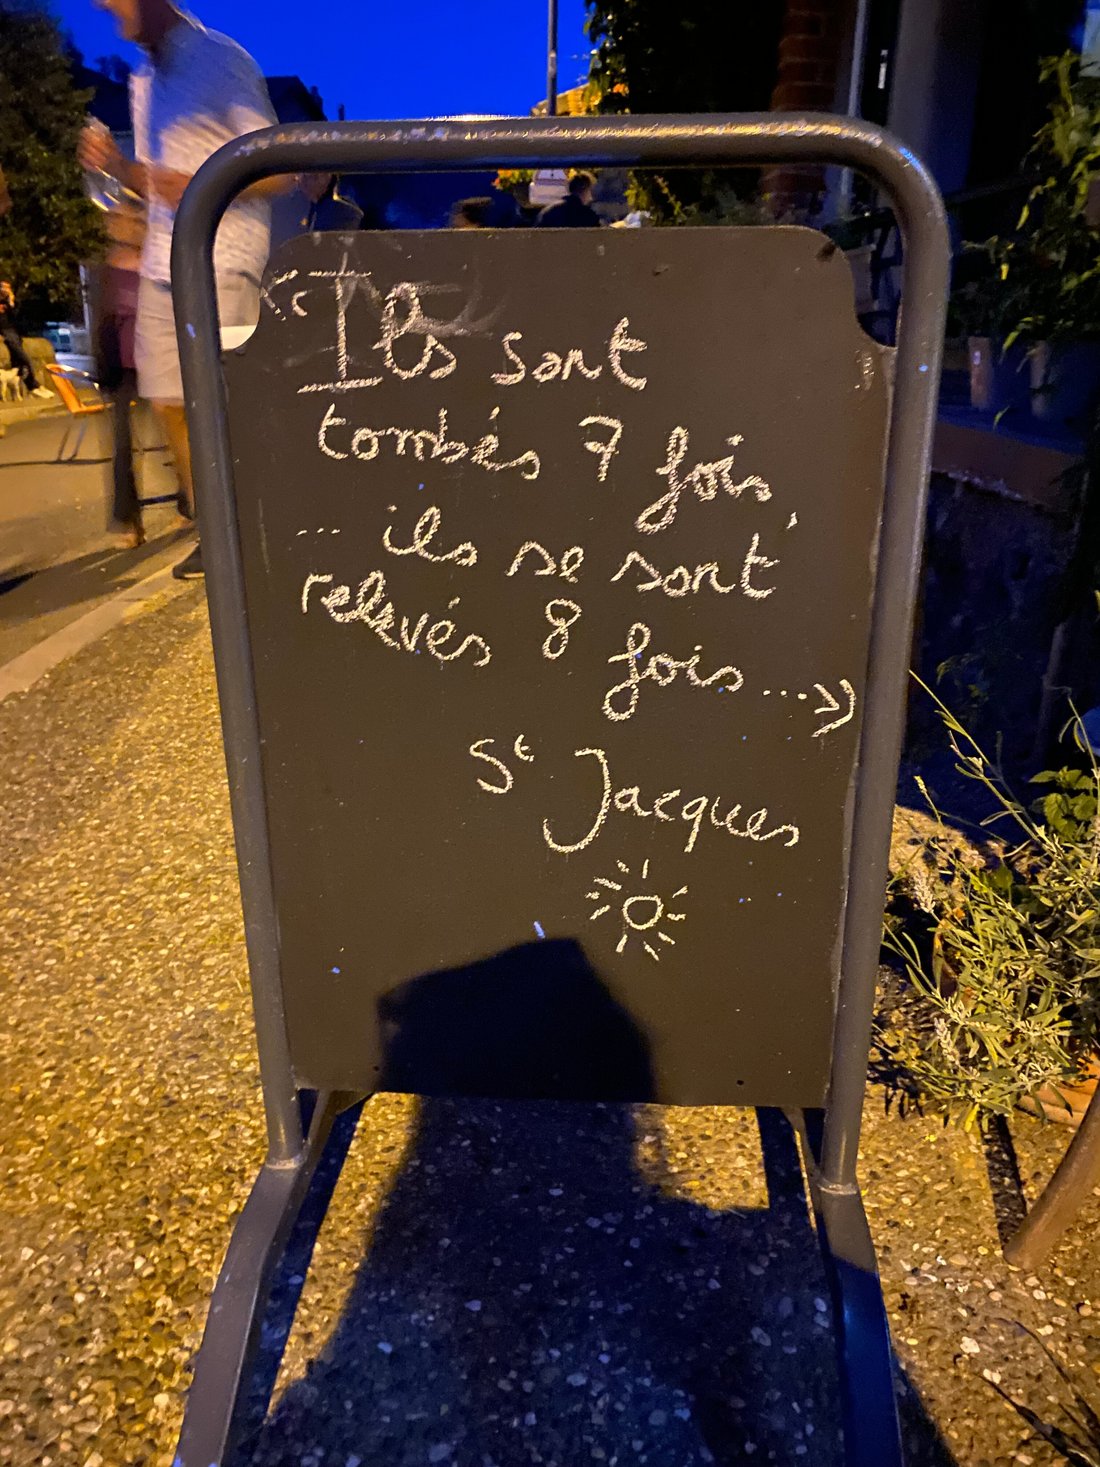 « Ils sont
tombés 7 fois,
... ils se sont
relevés 8 fois ... »
St Jacques